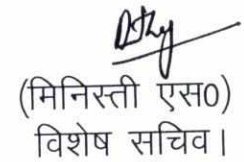 (मिनिस्ती एस0)
विशेष सचिव।